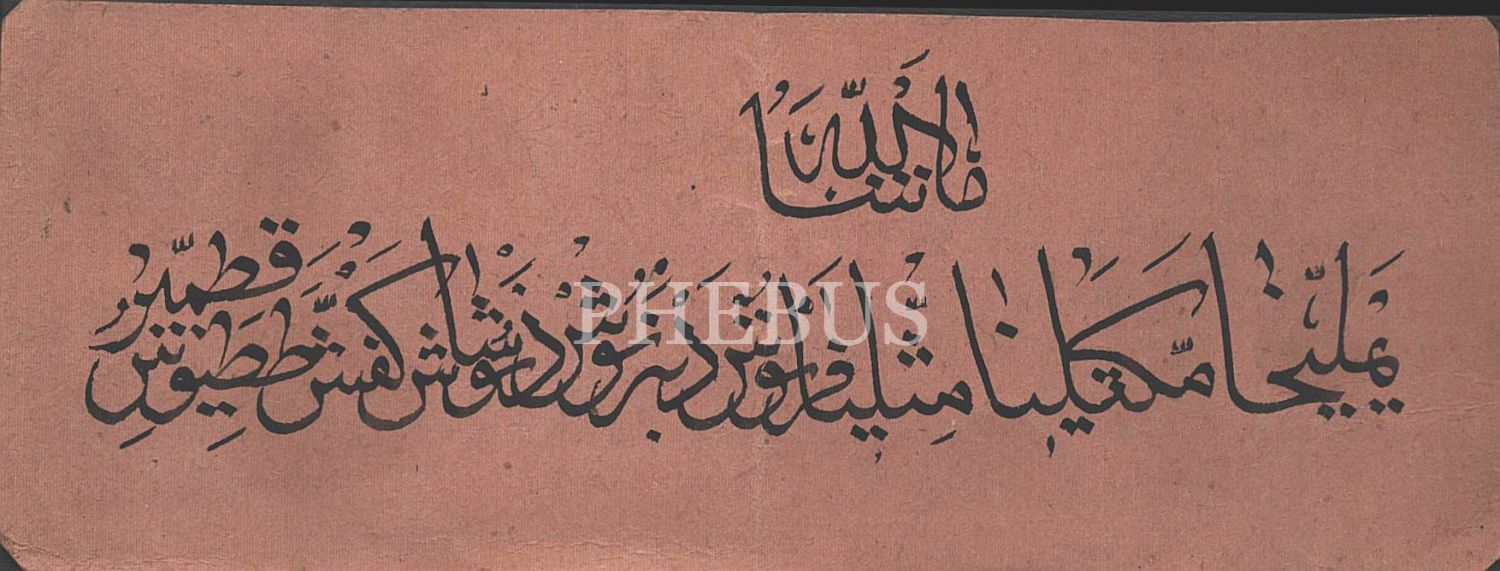 ما شاء الله
يمليخا مكثلينا مثلينا مرنوش دبرنوش شاذنوش كفشططيوش قطمير
PHEBUS